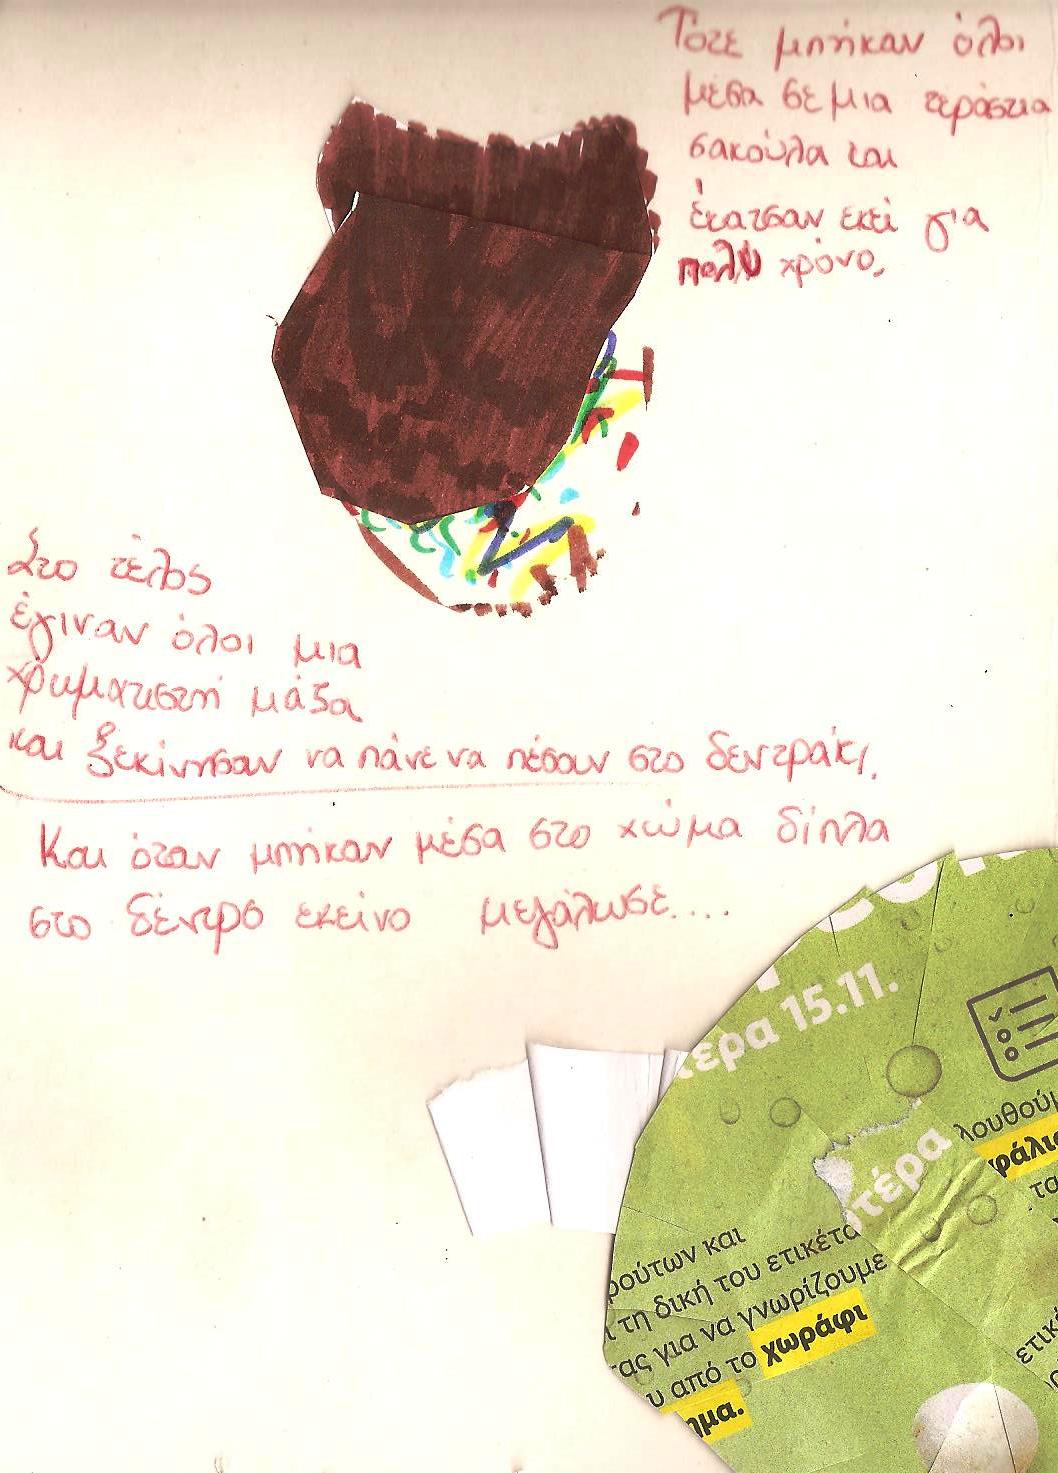 Τότε μπήκαν όλοι
μέσα σε μια τεράστια
σακούλα και
έκατσαν εκεί για
πολύ χρόνο.
Στο τέλος
έγιναν όλοι μια
χρωματιστή μάζα
και ξεκίνησαν να πάνε να πέσουν στο δεντράκι.
Και όταν μπήκαν μέσα στο χώμα δίπλα
στο δέντρο εκείνο μεγάλωσε....
τερα 15.11.
λουθούμ
φάλι
τα
τέρα
ρούτων και
τη δική του ετικέτα
τας για να γνωρίζουμε
υ από το χωράφι
ημα.
ετικέ